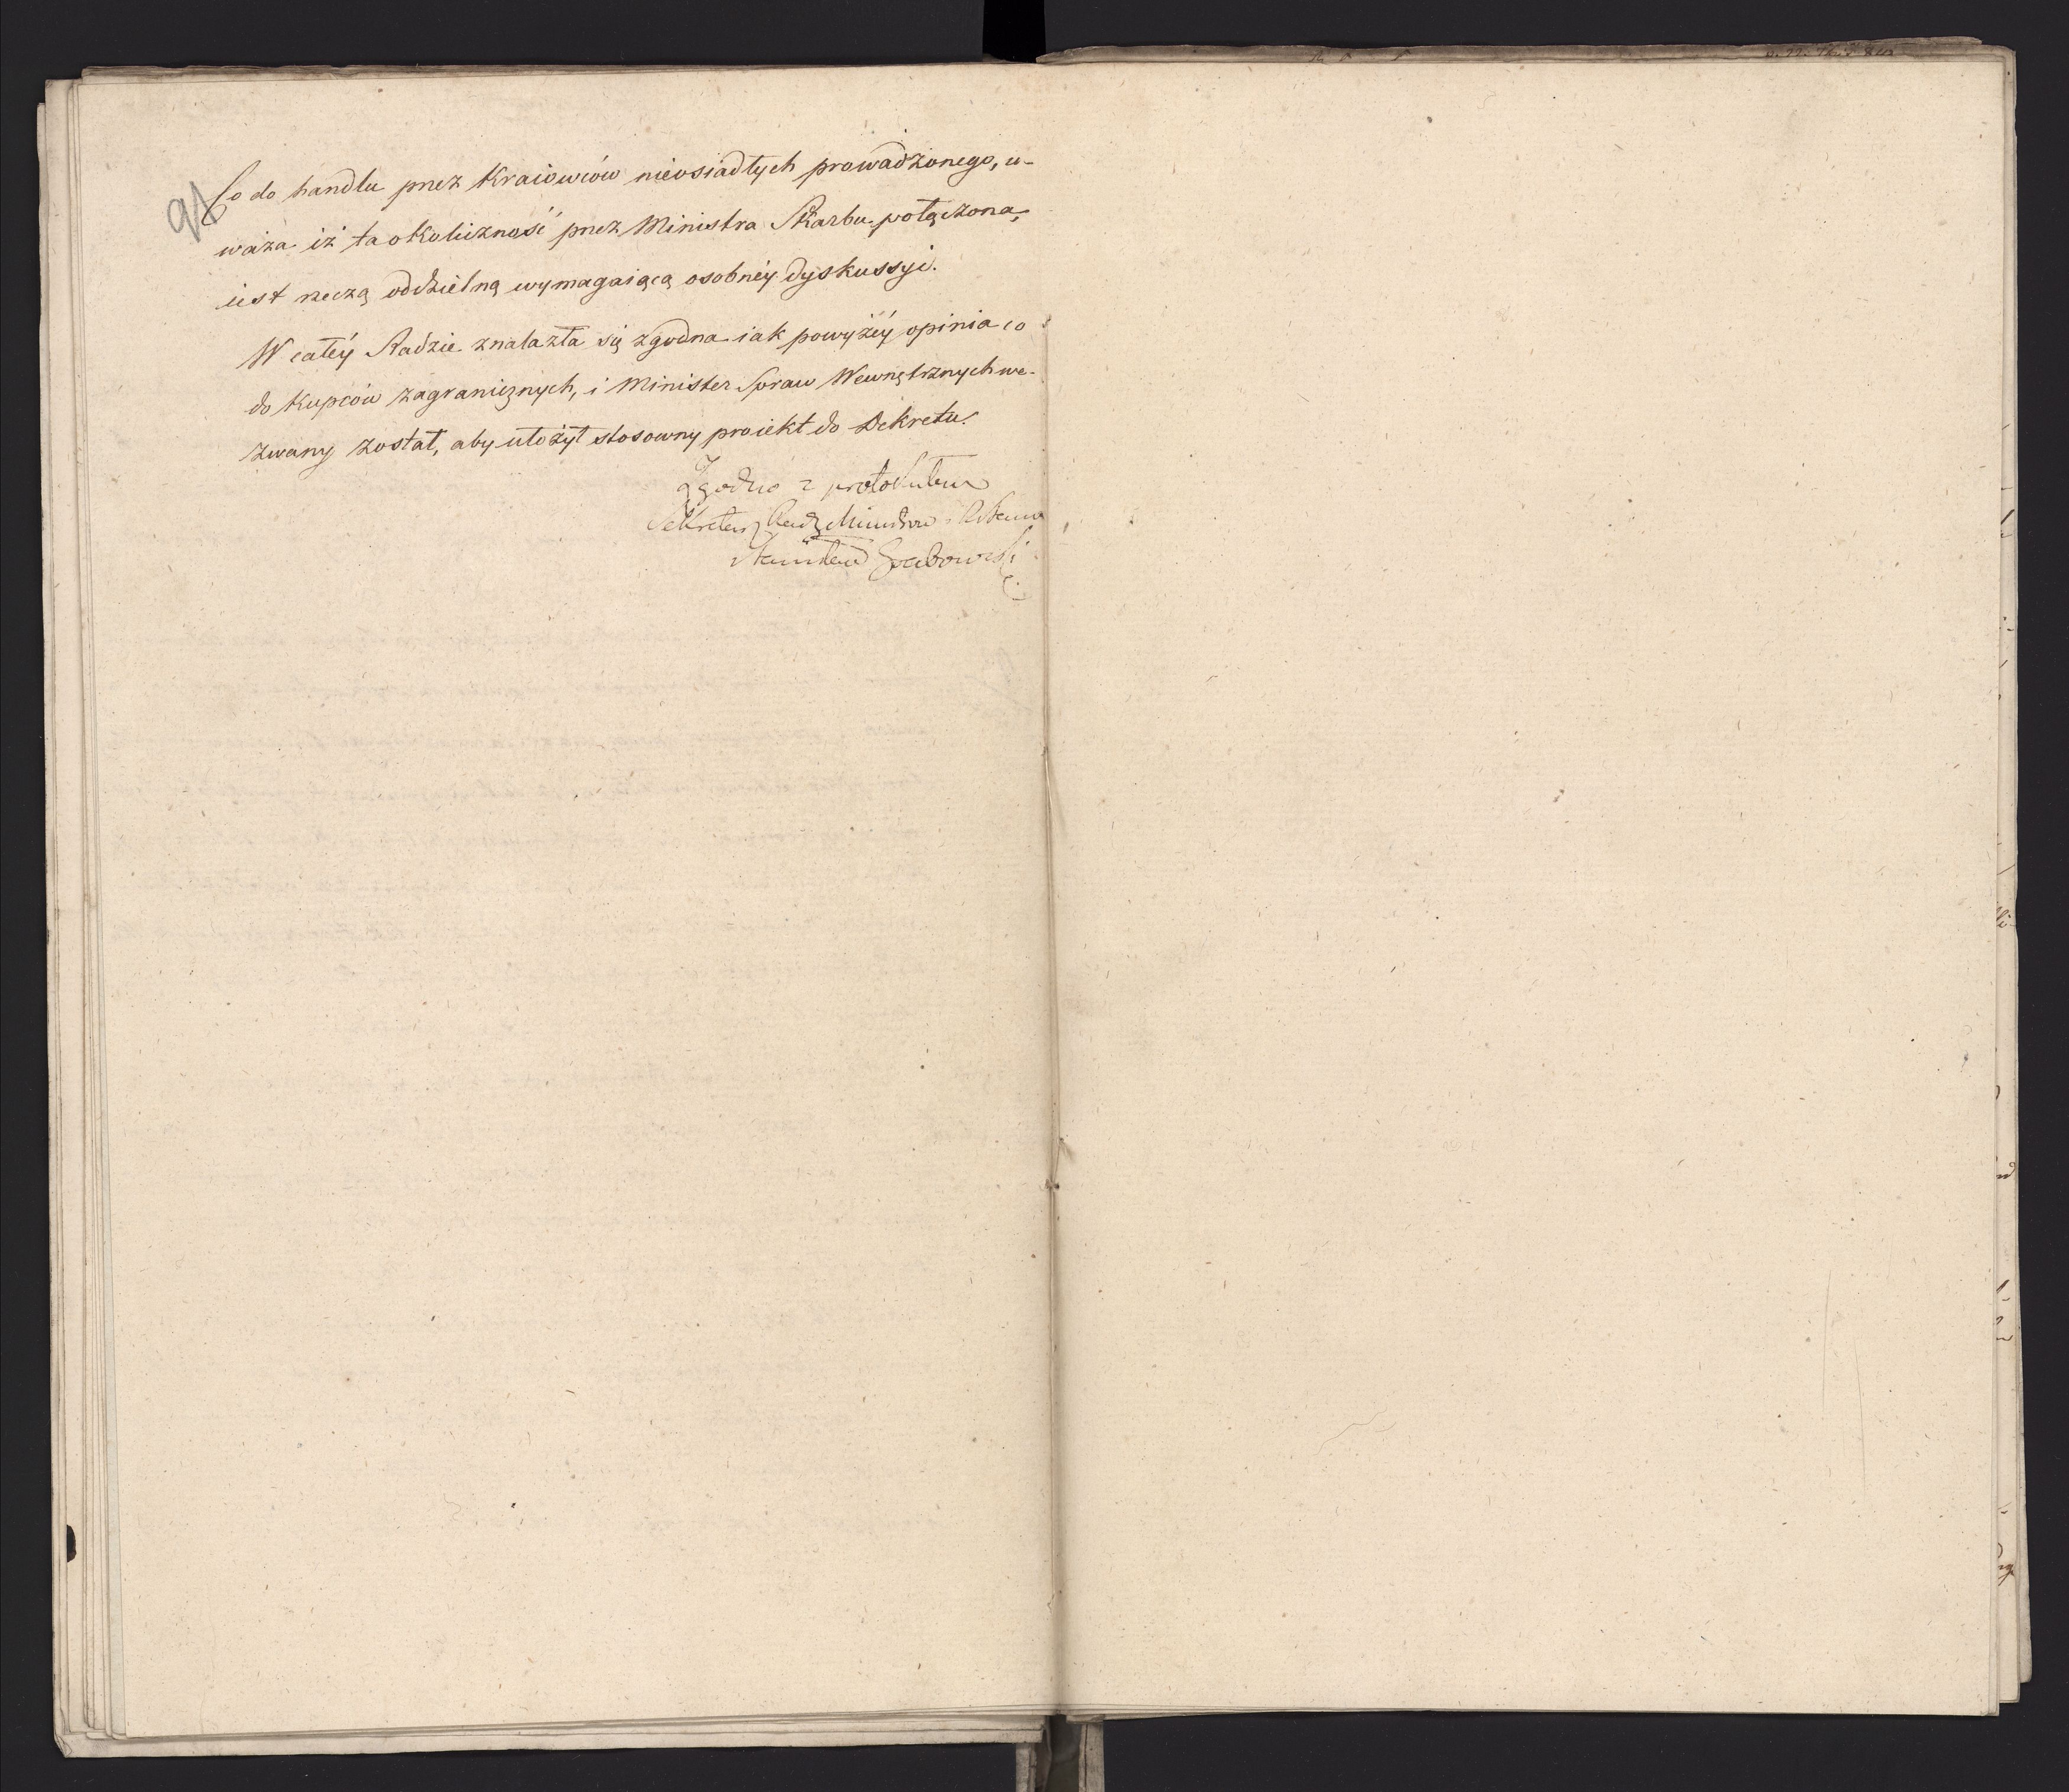 91
Co do handlu przez Kraiowców nieosiadłych prowadzonego, u-
waża iż ta okoliczność przez Ministra Skarbu połączona,
iest rzeczą oddzielną wymagaiącą osobnéy dyskussyi.
W całéy Radzie znalazła się zgodna iak powyżéy opinia co
do Kupców zagranicznych, i Minister Spraw Wewnętrznych we-
zwany został, aby ułożył stosowny proiekt do Dekretu.
Zgodno z protokułem
Sekretarz Rady Ministrów
Stanisław Grabowski